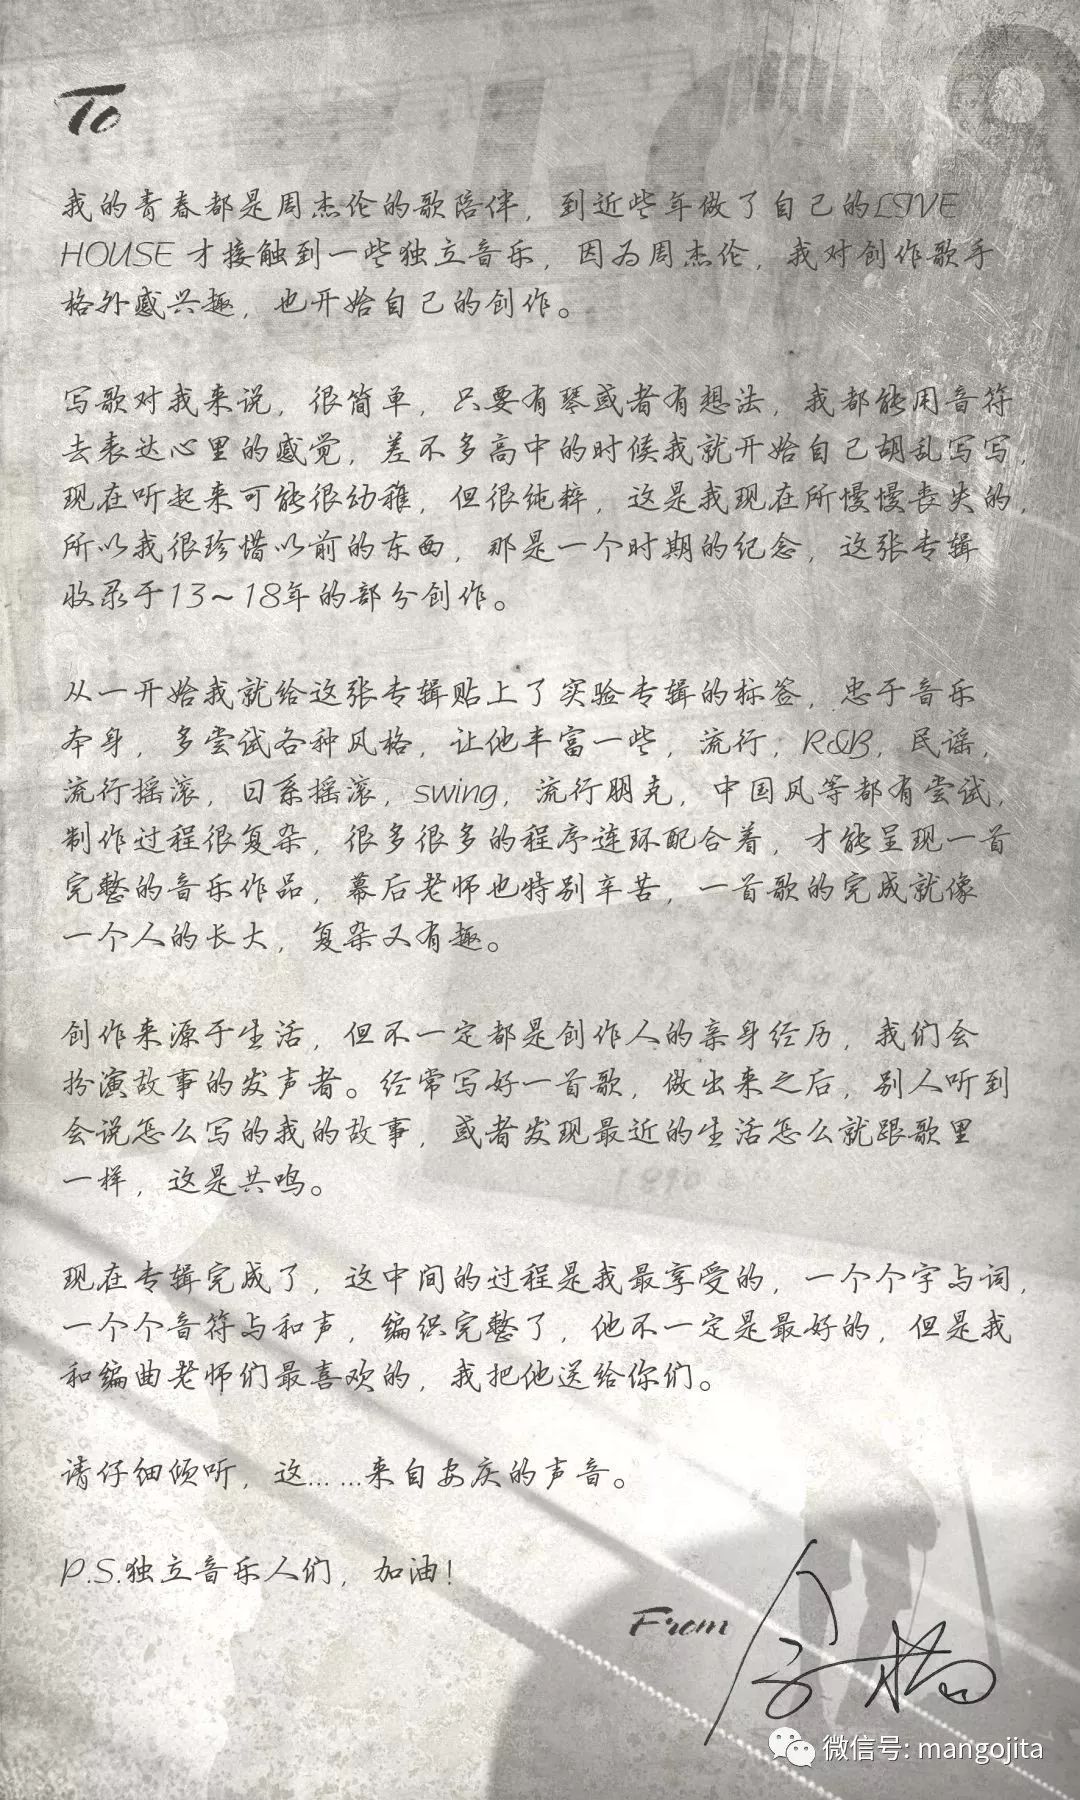 To
我的青春都是周杰伦的歌陪伴，到近些年做了自己的LIVE
HOUSE 才接触到一些独立音乐，因为周杰伦，我对创作歌手
格外感兴趣，也开始自己的创作。
写歌对我来说，很简单，只要有琴或者有想法，我都能用音符
去表达心里的感觉，差不多高中的时候我就开始自己胡乱写写，
现在听起来可能很幼稚，但很纯粹，这是我现在所慢慢丧失的，
所以我很珍惜以前的东西，那是一个时期的纪念，这张专辑
收录于13～18年的部分创作。
从一开始我就给这张专辑贴上了实验专辑的标签，忠于音乐
本身，多尝试各种风格，让他丰富一些，流行，R&B，民谣，
流行摇滚，日系摇滚，swing，流行朋克，中国风等都有尝试，
制作过程很复杂，很多很多的程序连环配合着，才能呈现一首
完整的音乐作品，幕后老师也特别辛苦，一首歌的完成就像
一个人的长大，复杂又有趣。
创作来源于生活，但不一定都是创作人的亲身经历，我们会
扮演故事的发声者。经常写好一首歌，做出来之后，别人听到
会说怎么写的我的故事，或者发现最近的生活怎么就跟歌里
一样，这是共鸣。
现在专辑完成了，这中间的过程是我最享受的，一个个字与词，
一个个音符与和声，编织完整了，他不一定是最好的，但是我
和编曲老师们最喜欢的，我把他送给你们。
请仔细倾听，这... ...来自安庆的声音。
P.S.独立音乐人们，加油！
From
微信号: mangojita